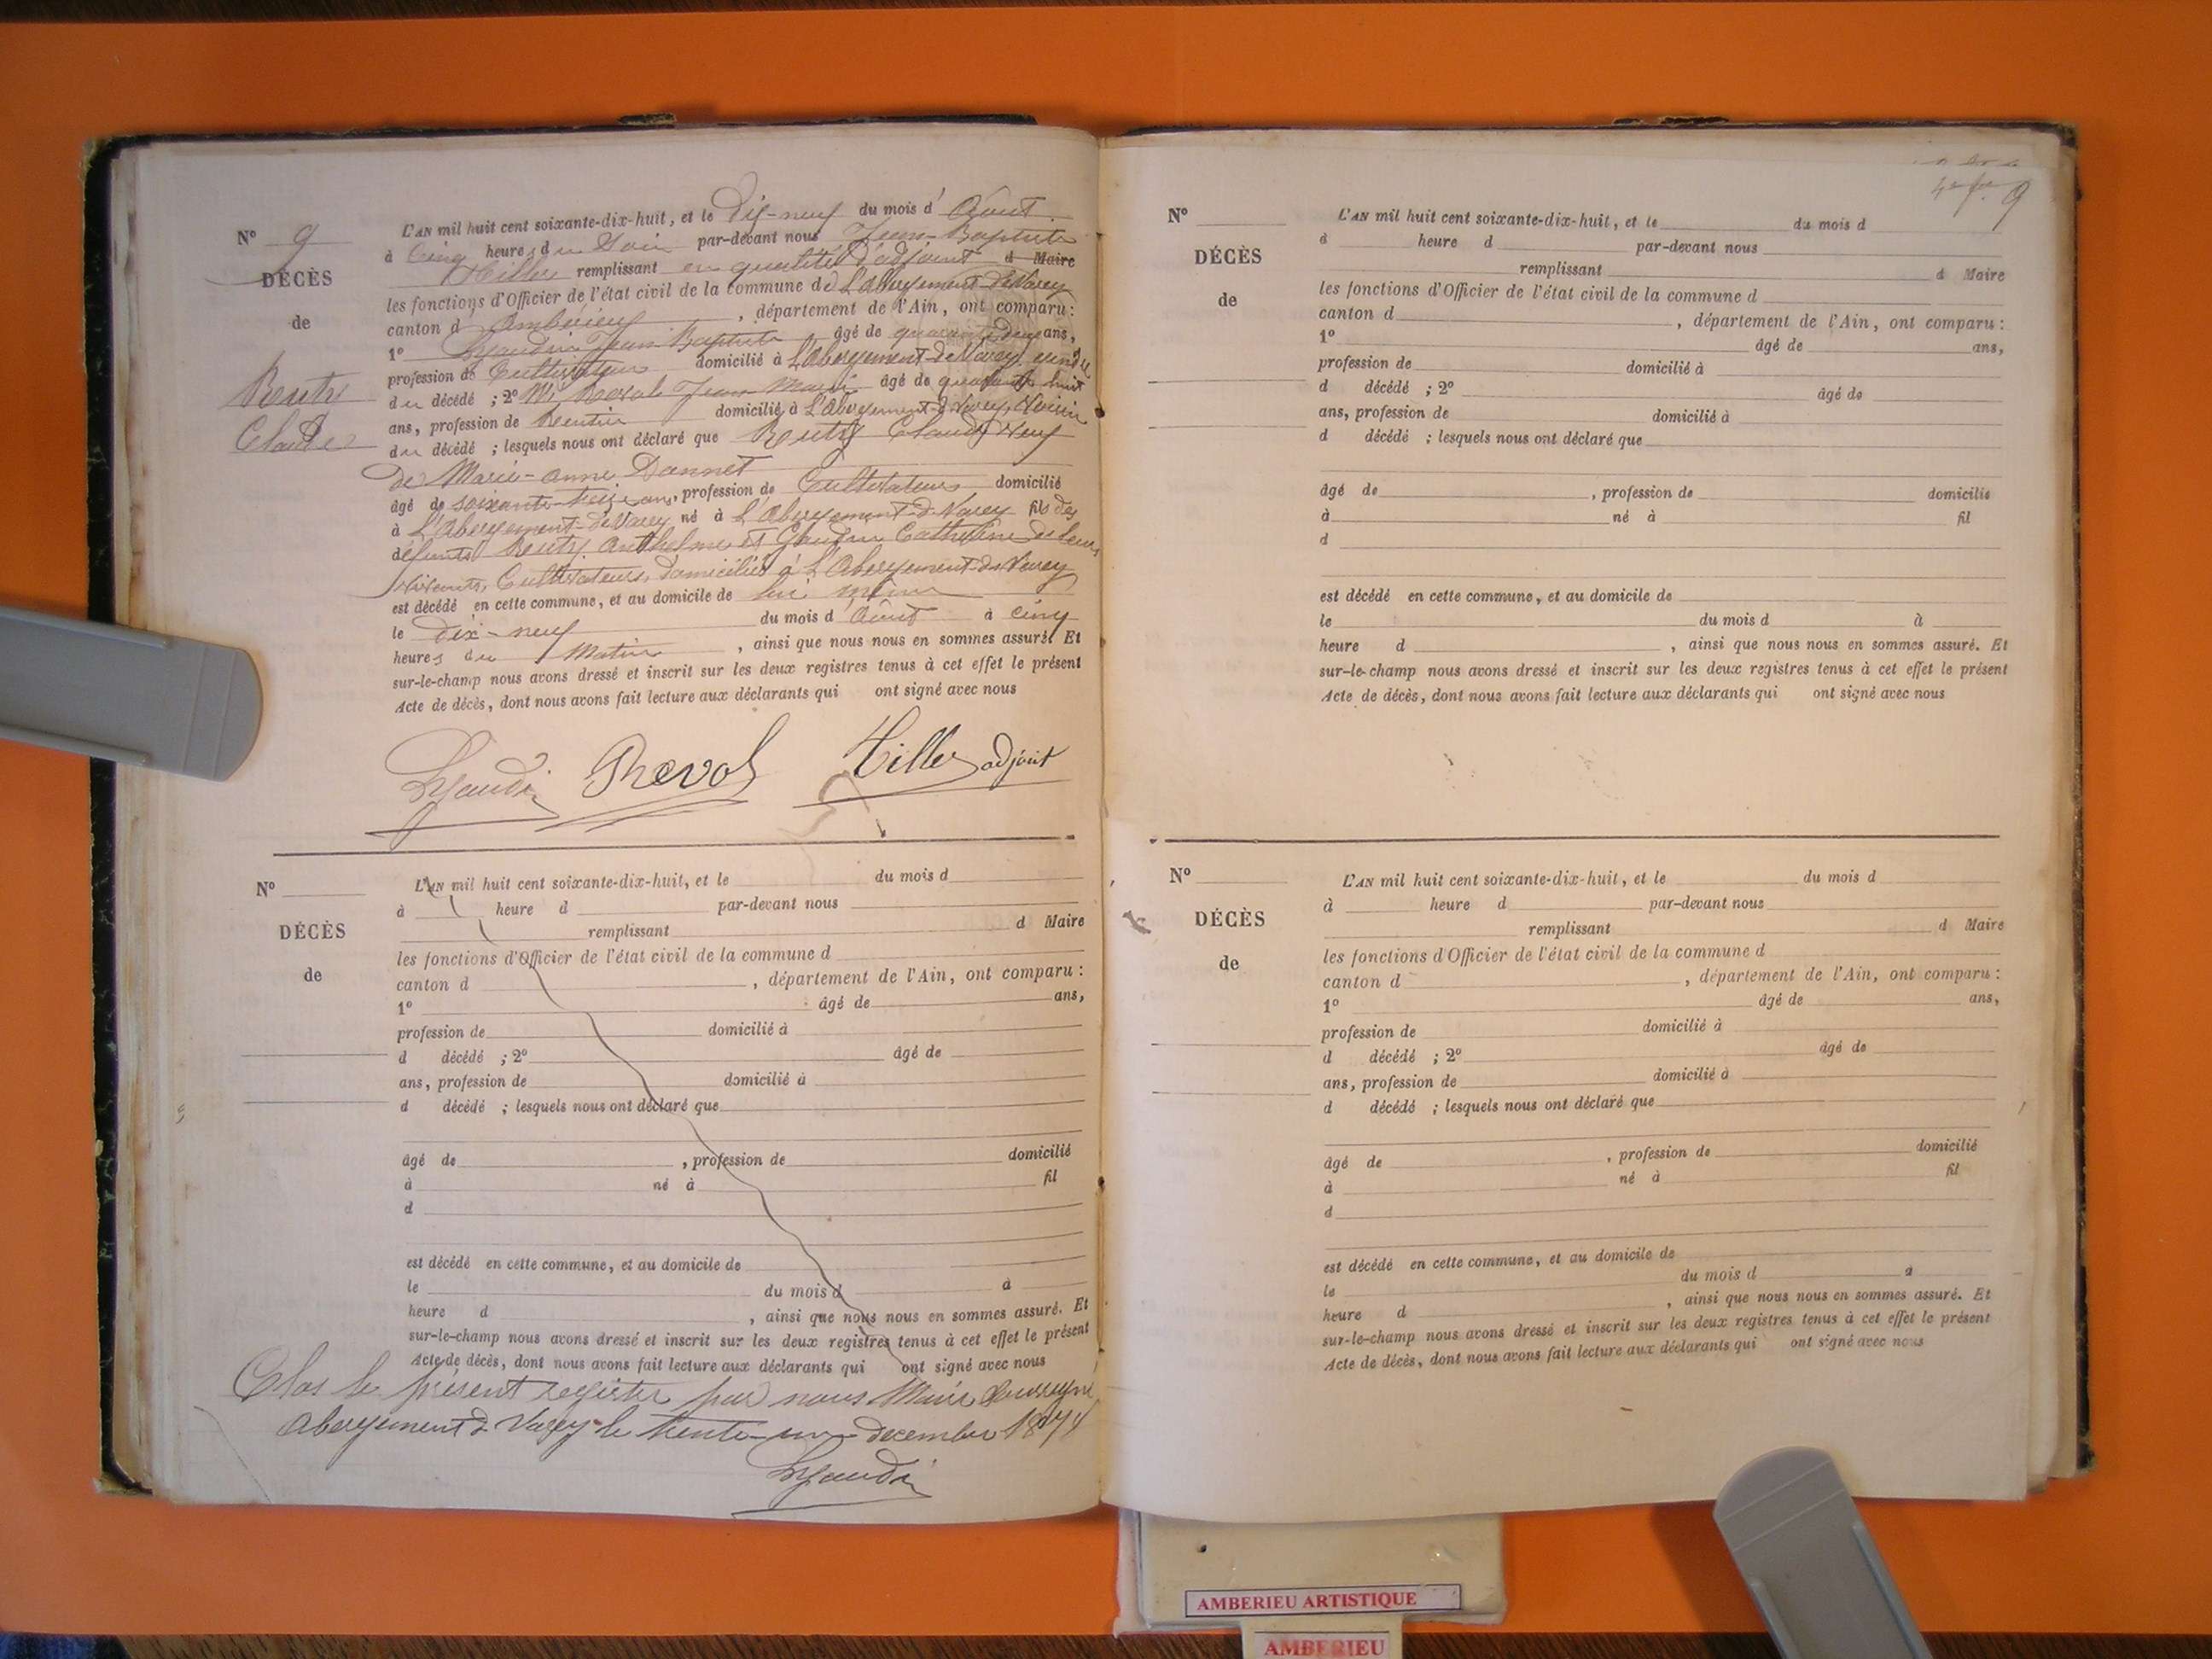 N° 9
DÉCÈS
de
Claude
L'AN mil huit cent soixante-dix-huit, et le Dix-neuf du mois d'Août
à Cinq heures du Soir par-devant nous Jean-Baptiste
Tiller remplissant en qualité d'adjoint d Maire
les fonctions d'Officier de l'état civil de la commune de L'Abergement-de-Varey
canton d'Ambérieu, département de l'Ain, ont comparu :
1° Jean Baptiste âgé de quarante deux ans,
profession de Cultivateur domicilié à L'Abergement-de-Varey
du décédé ; 2° Jean Marie âgé de quarante huit
ans, profession de Rentier domicilié à L'Abergement-de-Varey, Voisin
du décédé ; lesquels nous ont déclaré que Claude Veuf
de Marie-anne Dannet
âgé de soixante-treize ans, profession de Cultivateur domicilié
à L'Abergement-de-Varey né à L'Abergement-de-Varey fils des
défunts Anthelme et Gaudin Catherine de leurs
vivants, Cultivateurs, domiciliés à L'Abergement-de-Varey
est décédé en cette commune, et au domicile de lui même
le dix-neuf du mois d'Août à cinq
heures du Matin, ainsi que nous nous en sommes assuré. Et
sur-le-champ nous avons dressé et inscrit sur les deux registres tenus à cet effet le présent
Acte de décès, dont nous avons fait lecture aux déclarants qui ont signé avec nous
Prevol Tiller adjoint
N°
DÉCÈS
de
L'AN mil huit cent soixante-dix-huit, et le du mois d
à heure d par-devant nous
remplissant d Maire
les fonctions d'Officier de l'état civil de la commune d
canton d , département de l'Ain, ont comparu :
1° âgé de ans,
profession de domicilié à
d décédé ; 2° âgé de
ans, profession de domicilié à
d décédé ; lesquels nous ont déclaré que
âgé de , profession de domicilié
à né à fil
d
est décédé en cette commune, et au domicile de
le du mois d à
heure d , ainsi que nous nous en sommes assuré. Et
sur-le-champ nous avons dressé et inscrit sur les deux registres tenus à cet effet le présent
Acte de décès, dont nous avons fait lecture aux déclarants qui ont signé avec nous
Clos le présent registre par nous Maire soussigné
Abergement de Varey le trente-un décembre
9
N°
DÉCÈS
de
L'AN mil huit cent soixante-dix-huit, et le du mois d
à heure d par-devant nous
remplissant d Maire
les fonctions d'Officier de l'état civil de la commune d
canton d , département de l'Ain, ont comparu :
1° âgé de ans,
profession de domicilié à
d décédé ; 2° âgé de
ans, profession de domicilié à
d décédé ; lesquels nous ont déclaré que
âgé de , profession de domicilié
à né à fil
d
est décédé en cette commune, et au domicile de
le du mois d à
heure d , ainsi que nous nous en sommes assuré. Et
sur-le-champ nous avons dressé et inscrit sur les deux registres tenus à cet effet le présent
Acte de décès, dont nous avons fait lecture aux déclarants qui ont signé avec nous
N°
DÉCÈS
de
L'AN mil huit cent soixante-dix-huit, et le du mois d
à heure d par-devant nous
remplissant d Maire
les fonctions d'Officier de l'état civil de la commune d
canton d , département de l'Ain, ont comparu :
1° âgé de ans,
profession de domicilié à
d décédé ; 2° âgé de
ans, profession de domicilié à
d décédé ; lesquels nous ont déclaré que
âgé de , profession de domicilié
à né à fil
d
est décédé en cette commune, et au domicile de
le du mois d à
heure d , ainsi que nous nous en sommes assuré. Et
sur-le-champ nous avons dressé et inscrit sur les deux registres tenus à cet effet le présent
Acte de décès, dont nous avons fait lecture aux déclarants qui ont signé avec nous
AMBERIEU ARTISTIQUE
AMBERIEU